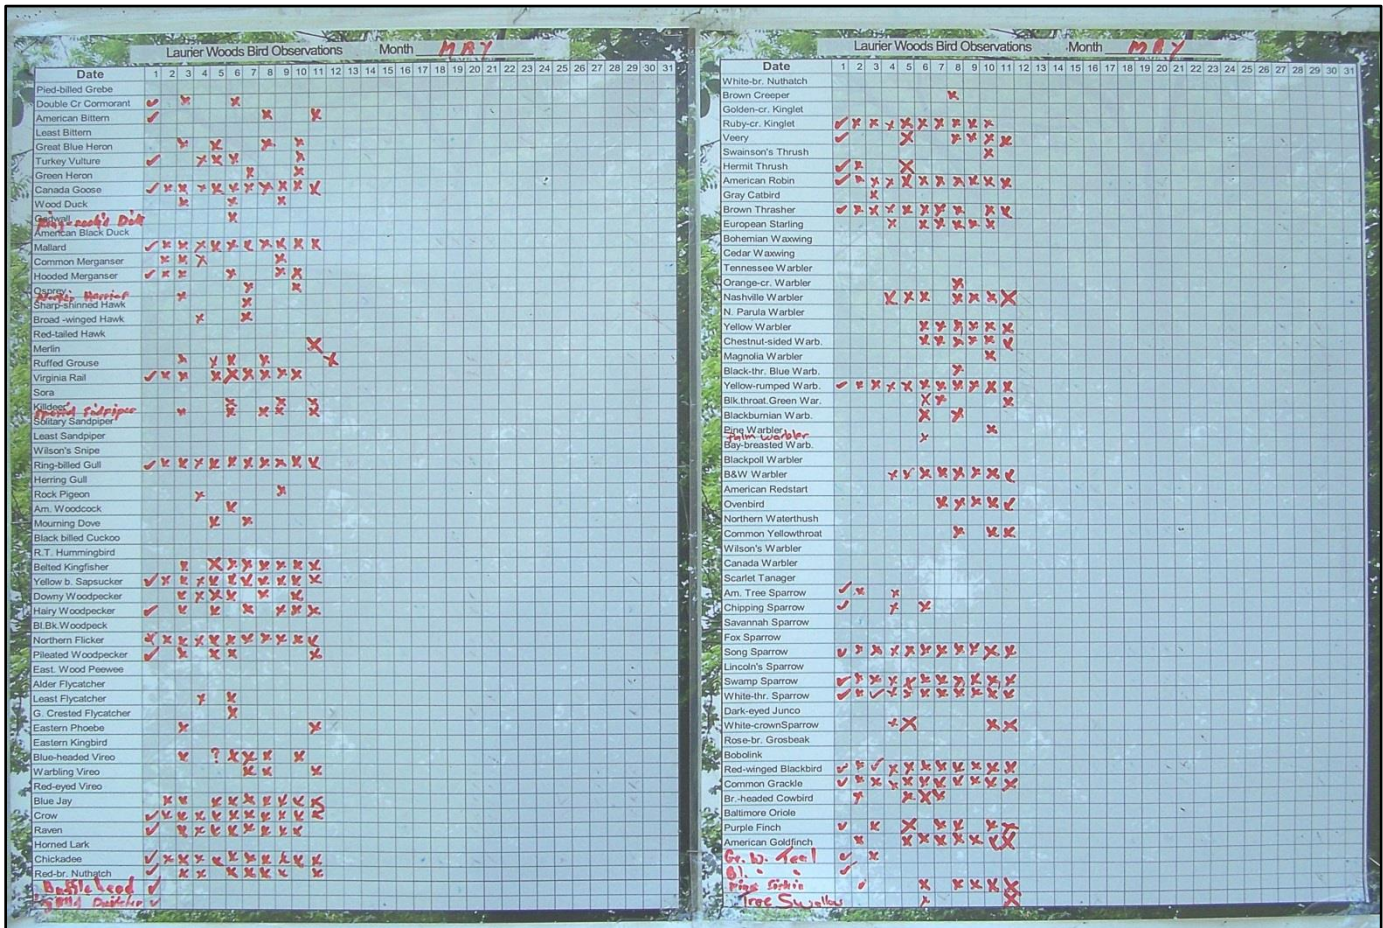 Laurier Woods Bird Observations Month MAY
Date 1 2 3 4 5 6 7 8 9 10 11 12 13 14 15 16 17 18 19 20 21 22 23 24 25 26 27 28 29 30 31
Pied-billed Grebe
Double Cr Cormorant
American Bittern
Least Bittern
Great Blue Heron
Turkey Vulture
Green Heron
Canada Goose
Wood Duck
Gadwall
Ring-neck'd Duck
American Black Duck
Mallard
Common Merganser
Hooded Merganser
Osprey
Harrier
Sharp-shinned Hawk
Broad -winged Hawk
Red-tailed Hawk
Merlin
Ruffed Grouse
Virginia Rail
Sora
Killdeer
Sandpiper
Solitary Sandpiper
Least Sandpiper
Wilson's Snipe
Ring-billed Gull
Herring Gull
Rock Pigeon
Am. Woodcock
Mourning Dove
Black billed Cuckoo
R.T. Hummingbird
Belted Kingfisher
Yellow b. Sapsucker
Downy Woodpecker
Hairy Woodpecker
Bl.Bk.Woodpeck
Northern Flicker
Pileated Woodpecker
East. Wood Peewee
Alder Flycatcher
Least Flycatcher
G. Crested Flycatcher
Eastern Phoebe
Eastern Kingbird
Blue-headed Vireo ?
Warbling Vireo
Red-eyed Vireo
Blue Jay
Crow
Raven
Horned Lark
Chickadee
Red-br. Nuthatch
Bufflehead
Laurier Woods Bird Observations Month MAY
Date 1 2 3 4 5 6 7 8 9 10 11 12 13 14 15 16 17 18 19 20 21 22 23 24 25 26 27 28 29 30 31
White-br. Nuthatch
Brown Creeper
Golden-cr. Kinglet
Ruby-cr. Kinglet
Veery
Swainson's Thrush
Hermit Thrush
American Robin
Gray Catbird
Brown Thrasher
European Starling
Bohemian Waxwing
Cedar Waxwing
Tennessee Warbler
Orange-cr. Warbler
Nashville Warbler
N. Parula Warbler
Yellow Warbler
Chestnut-sided Warb.
Magnolia Warbler
Black-thr. Blue Warb.
Yellow-rumped Warb.
Blk.throat.Green War.
Blackburnian Warb.
Pine Warbler
Palm Warbler
Bay-breasted Warb.
Blackpoll Warbler
B&W Warbler
American Redstart
Ovenbird
Northern Waterthush
Common Yellowthroat
Wilson's Warbler
Canada Warbler
Scarlet Tanager
Am. Tree Sparrow
Chipping Sparrow
Savannah Sparrow
Fox Sparrow
Song Sparrow
Lincoln's Sparrow
Swamp Sparrow
White-thr. Sparrow
Dark-eyed Junco
White-crownSparrow
Rose-br. Grosbeak
Bobolink
Red-winged Blackbird
Common Grackle
Br.-headed Cowbird
Baltimore Oriole
Purple Finch
American Goldfinch
Gr. W. Teal
Bl. " "
Pine Siskin
Tree Swallow